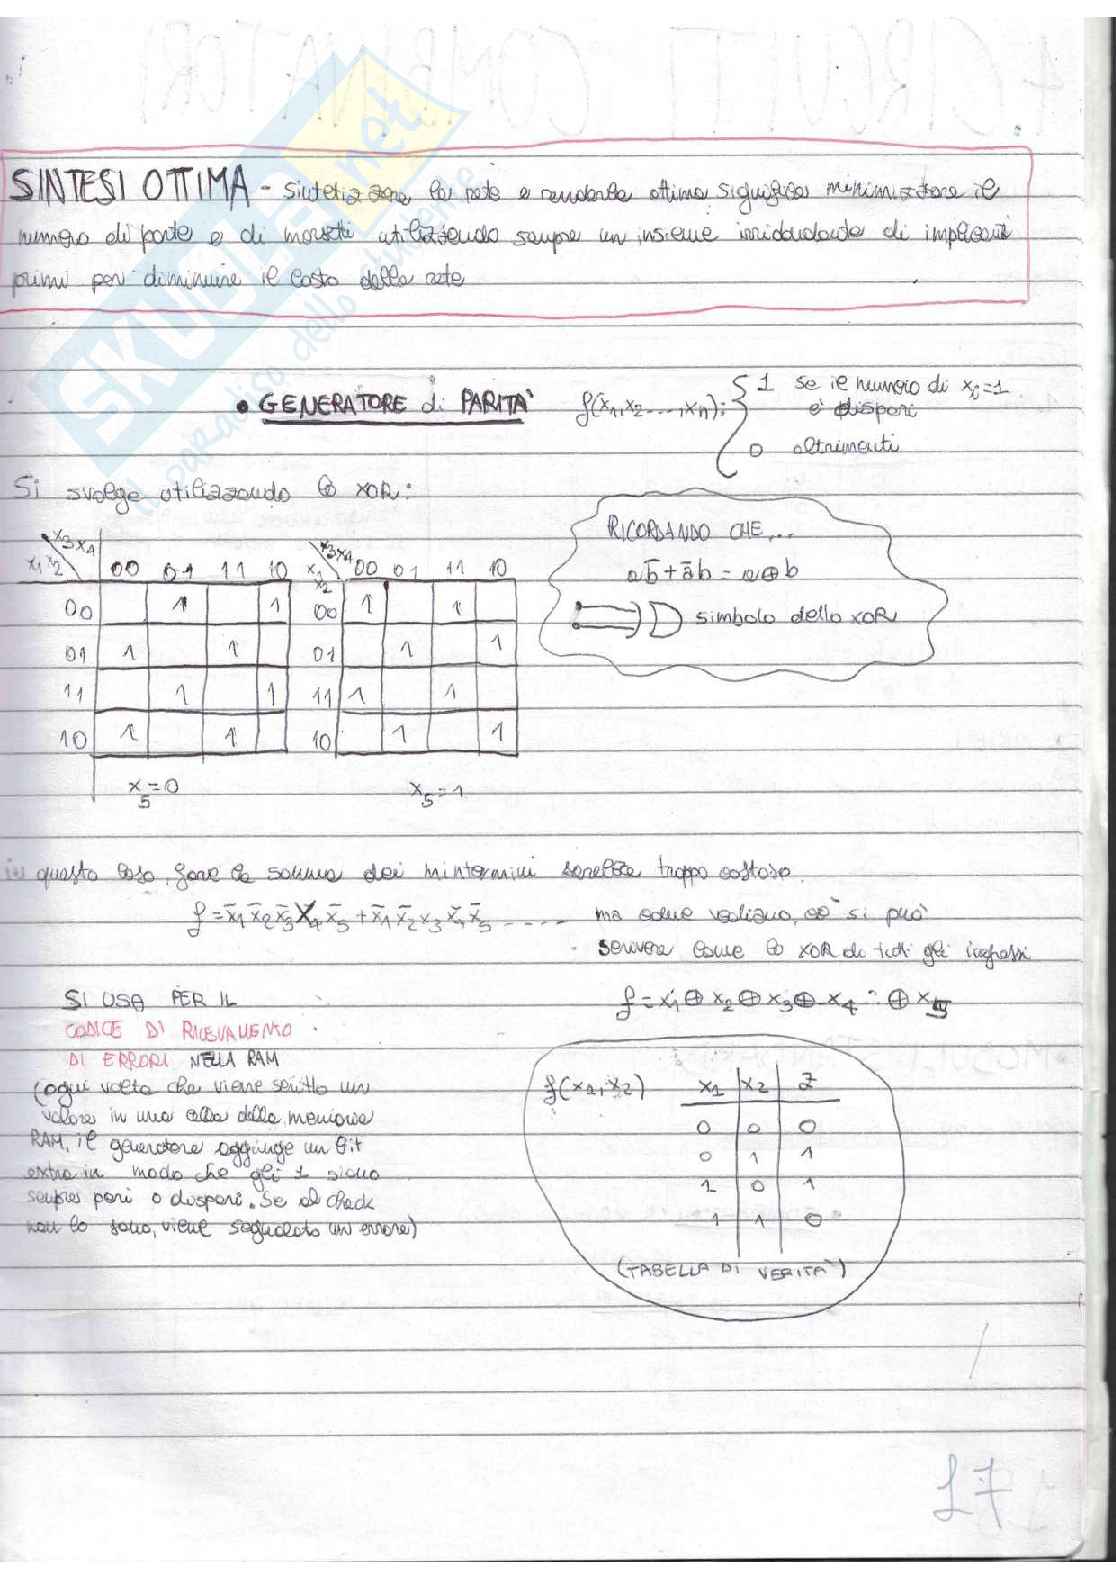 SINTESI OTTIMA - sintetizzare la rete e renderla ottima significa minimizzare il
numero di porte e di morsetti utilizzando sempre un insieme irridondante di implicanti
primi per diminuire il costo della rete
SKUOLA.net
il paradiso dello studente
• GENERATORE di PARITA'
f(x1, x2 ....., xn): { 1 se il numero di xi=1
è dispari
0 altrimenti
Si svolge utilizzando lo XOR:
RICORDANDO CHE...
ab̅ + a̅b = a⊕b
simbolo dello XOR
x3x4 x3x4
x1x2 00 01 11 10 x1x2 00 01 11 10
00 1 1 00 1 1
01 1 1 01 1 1
11 1 1 11 1 1
10 1 1 10 1 1
x5=0 x5=1
in questo caso, fare la somma dei mintermini sarebbe troppo costoso
f = x̅1 x̅2 x̅3 x4 x̅5 + x̅1 x̅2 x3 x̅4 x̅5 ..... ma come vediamo, ciò si può
scrivere come lo XOR di tutti gli ingressi
f = x1 ⊕ x2 ⊕ x3 ⊕ x4 ⊕ x5
SI USA PER IL
CODICE DI RILEVAMENTO
DI ERRORI NELLA RAM
(ogni volta che viene scritto un
valore in una cella della memoria
RAM, il generatore aggiunge un bit
extra in modo che gli 1 siano
sempre pari o dispari. Se al check
non lo sono, viene segnalato un errore)
f(x1, x2) x1 x2 Z
0 0 0
0 1 1
1 0 1
1 1 0
(TABELLA DI VERITA')
17